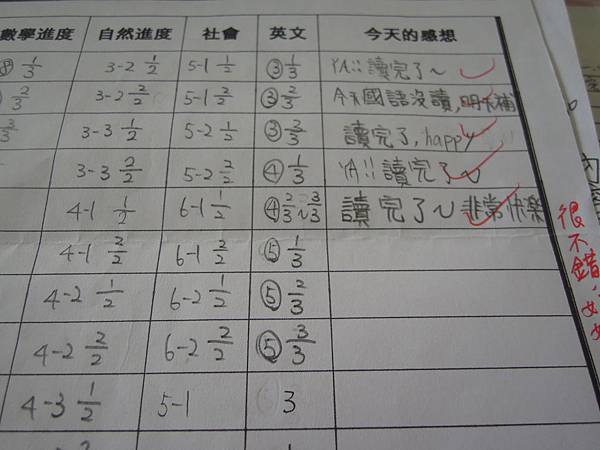 數學進度 自然進度 社會 英文 今天的感想
1/3 3-2 1/2 5-1 1/2 ③ 1/3 YA!! 讀完了~
2/3 3-2 2/2 5-1 2/2 ③ 2/3 今天國語沒讀,明天補
3/3 3-3 1/2 5-2 1/2 ③ 3/3 讀完了,happy
3-3 2/2 5-2 2/2 ④ 1/3 YA!! 讀完了~
4-1 1/2 6-1 1/2 ④ 2/3~3/3 讀完了~非常快樂
4-1 2/2 6-1 2/2 ⑤ 1/3
4-2 1/2 6-2 1/2 ⑤ 2/3
4-2 2/2 6-2 2/2 ⑤ 3/3
4-3 1/2 5-1 3
很不錯